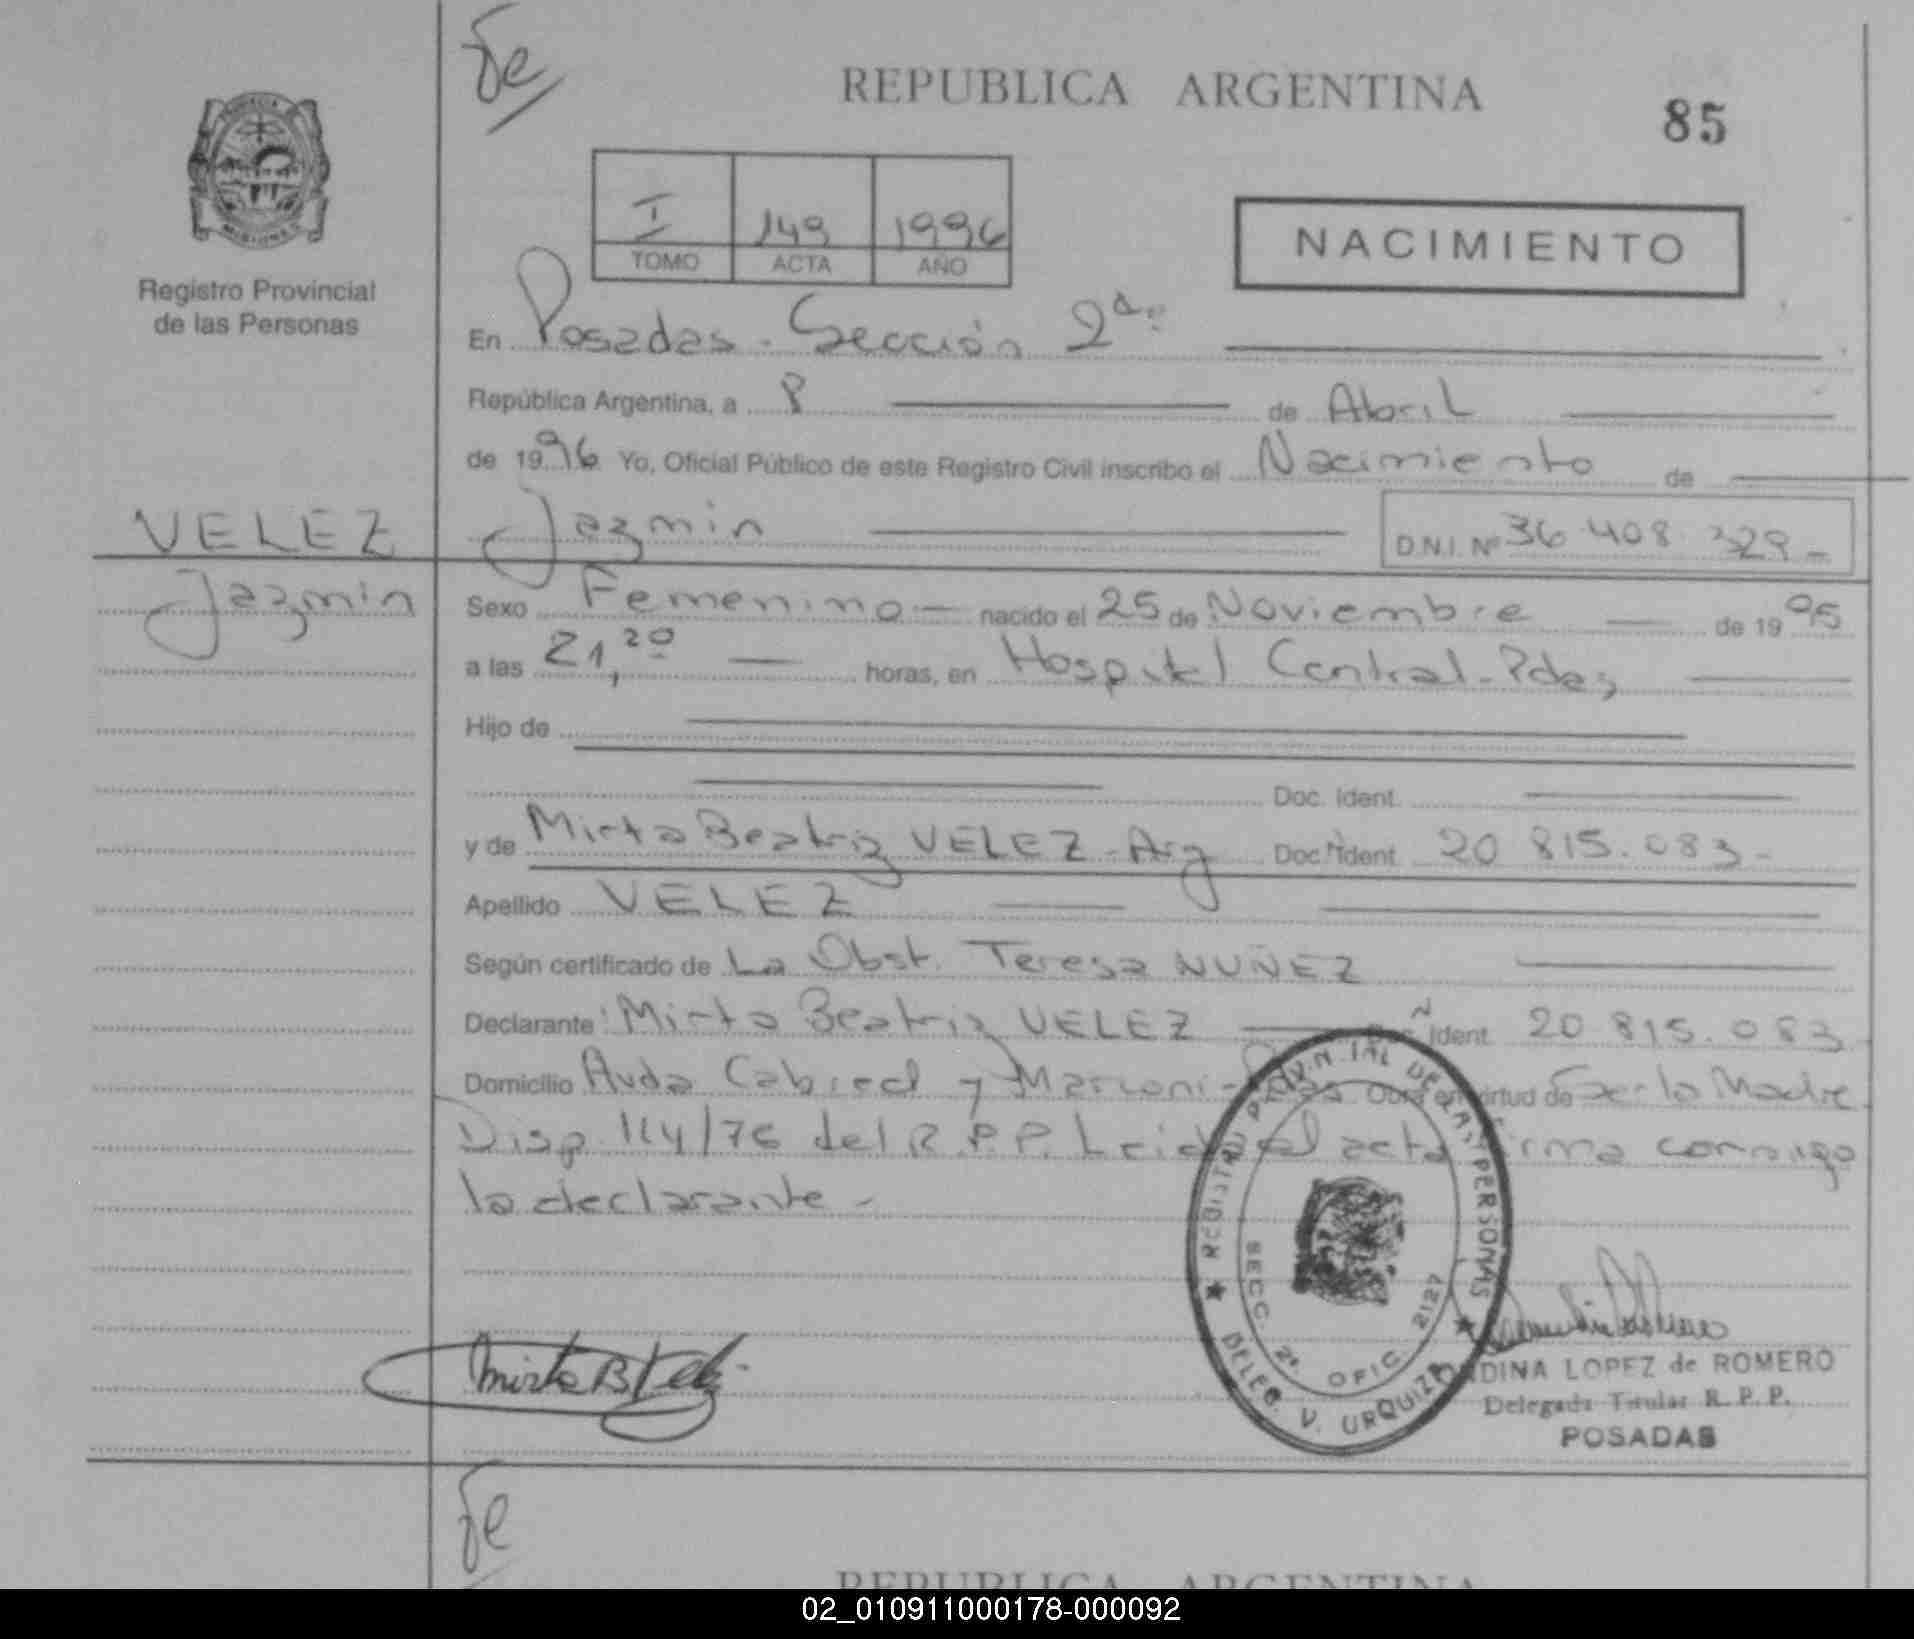 fe
REPUBLICA ARGENTINA
85
PROVINCIA
MISIONES
Registro Provincial
de las Personas
I 149 1996
TOMO ACTA AÑO
NACIMIENTO
En Posadas - Sección 2ª
República Argentina, a 8 de Abril
de 1996 Yo, Oficial Público de este Registro Civil inscribo el Nacimiento de
VELEZ
Jazmin
Jazmin D.N.I. Nº 36.408.329-
Sexo Femenino - nacido el 25 de Noviembre de 1995
a las 21,20 horas, en Hospital Central - Pdas
Hijo de
Doc. Ident.
y de Mirta Beatriz VELEZ - Arg Doc. Ident. 20.815.083-
Apellido VELEZ
Según certificado de La Obst. Teresa NUÑEZ
Declarante: Mirta Beatriz VELEZ Ident. 20.815.083
Domicilio Avda Cabred y Marconi - Pdas Obra en virtud de Ser la Madre
Disp. 114/76 del R.P.P. Leida el acta firma conmigo
la declarante -
REGISTRO PROVINCIAL DE LAS PERSONAS
SECC. 2ª OFIC. 2127
DELEG. V. URQUIZA
Mirta B Velez
ONDINA LOPEZ de ROMERO
Delegada Titular R. P. P.
POSADAS
fe
REPUBLICA ARGENTINA
02_010911000178-000092